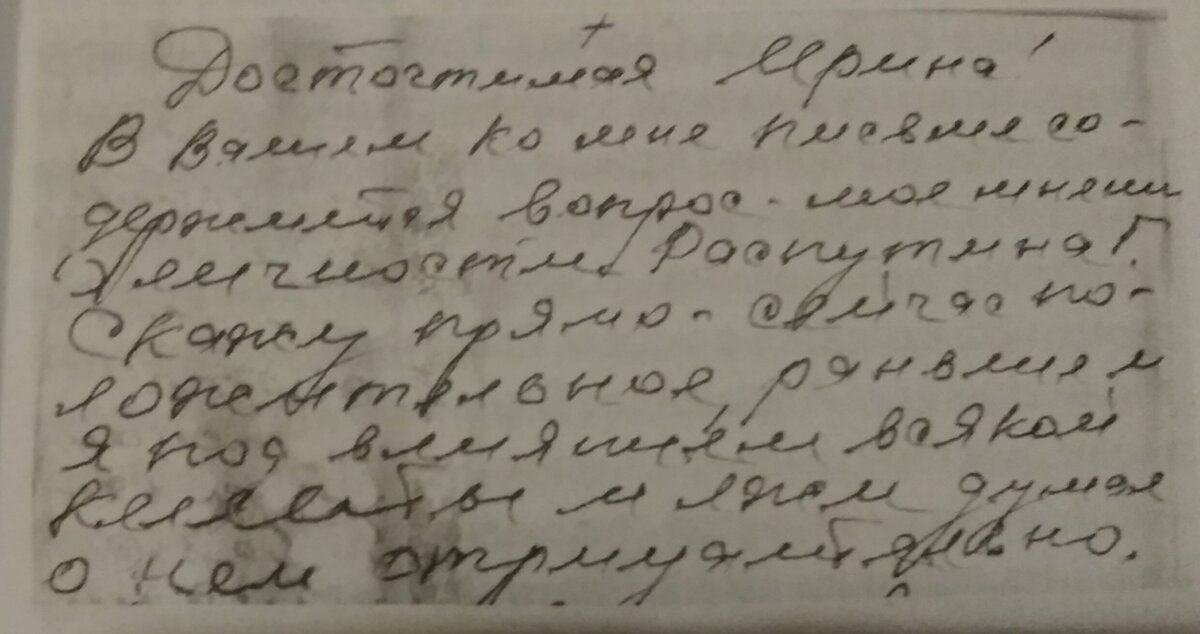 +
Досточтимая Ирина!
В Вашем ко мне письме со-
держится вопрос - мое мнени
о личности Распутина Г.
Скажу прямо - сейчас по-
ложительное, раньше и
я под влиянием всякой
клеветы и лжи думал
о нем отрицательно.